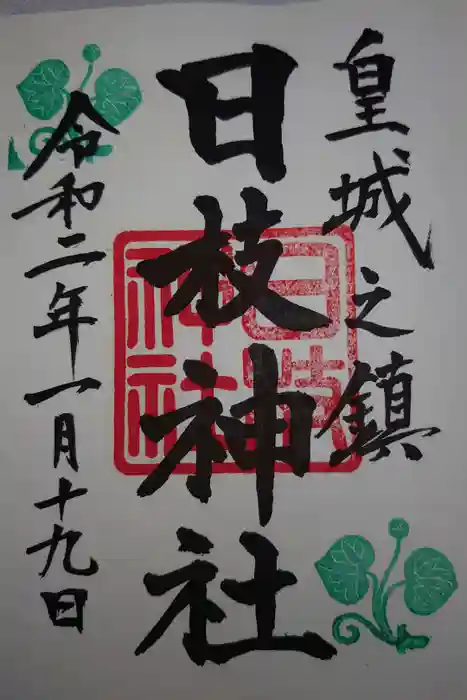 皇城之鎮
日枝神社
日枝
神社
令和二年一月十九日